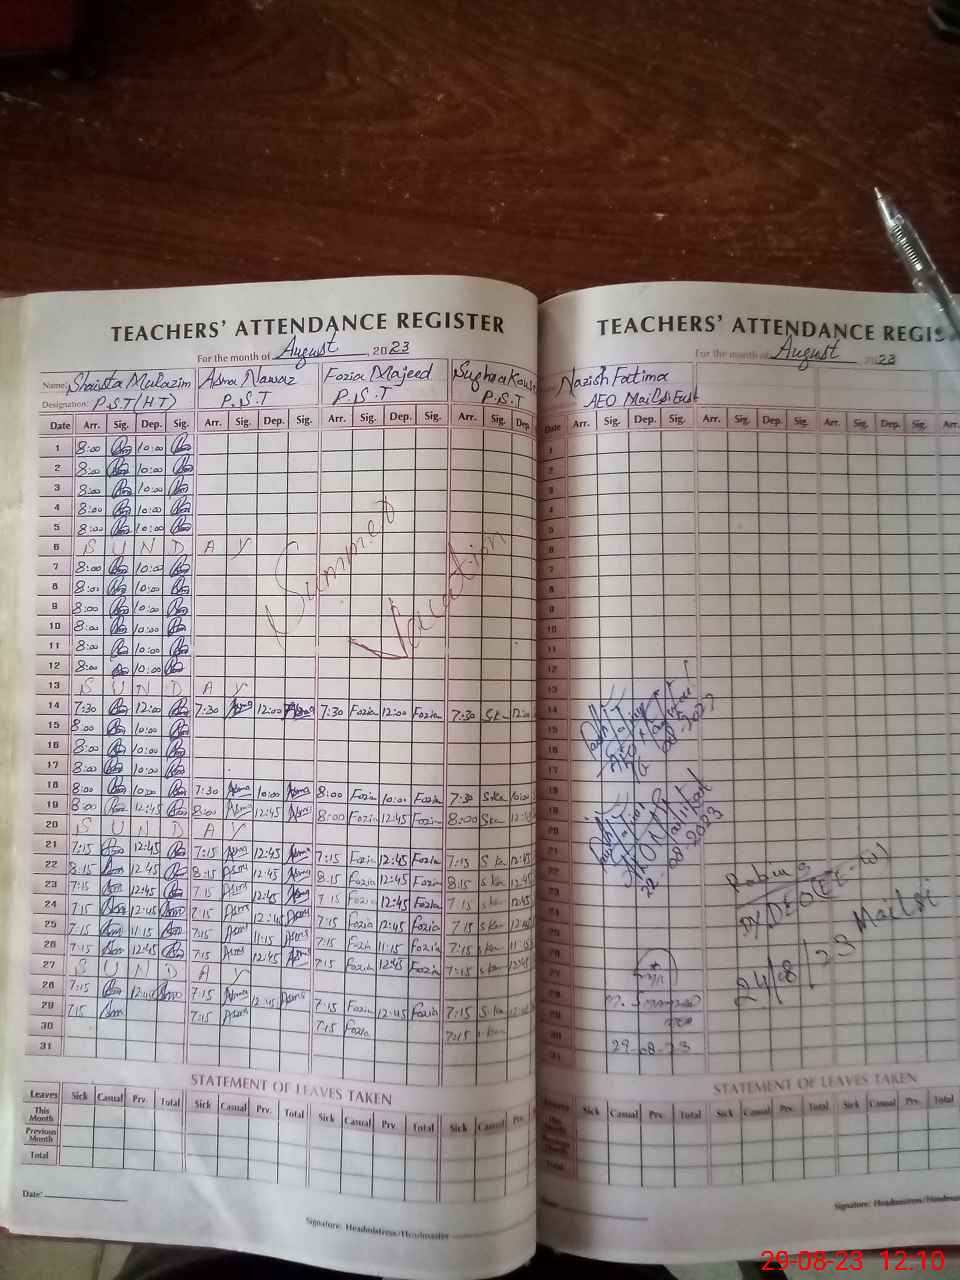 TEACHERS' ATTENDANCE REGISTER
For the month of August, 2023
Name: Shaista Mulazim Asma Nawaz Fozia Majeed Sughra
Designation: P.S.T (HT) P.S.T P.S.T P.S.T
Date Arr. Sig. Dep. Sig. Arr. Sig. Dep. Sig. Arr. Sig. Dep. Sig. Arr. Sig. Dep.
1 8:00 10:00
2 8:00 10:00
3 8:00 10:00
4 8:00 10:00
5 8:00 10:00
6 S U N D A Y
7 8:00 10:00
8 8:00 10:00
9 8:00 10:00
10 8:00 10:00
11 8:00 10:00
12 8:00 10:00
Summer
Vacation
13 S U N D A Y
14 7:30 12:00 7:30 Asma 12:00 Asma 7:30 Fozia 12:00 Fozia 7:30 Ska 12:00
15 8:00 10:00
16 8:00 10:00
17 8:00 10:00
18 8:00 10:00 7:30 Asma 10:00 Asma 8:00 Fozia 10:00 Fozia 7:30 Ska 10:00
19 8:00 12:45 8:00 Asma 12:45 Asma 8:00 Fozia 12:45 Fozia 8:00 Ska 12:45
20 S U N D A Y
21 7:15 12:45 7:15 Asma 12:45 Asma 7:15 Fozia 12:45 Fozia 7:15 Ska 12:45
22 8:15 12:45 8:15 Asma 12:45 Asma 8:15 Fozia 12:45 Fozia 8:15 Ska 12:45
23 7:15 12:45 7:15 Asma 12:45 Asma 7:15 Fozia 12:45 Fozia 7:15 Ska 12:45
24 7:15 12:45 7:15 Asma 12:45 Asma 7:15 Fozia 12:45 Fozia 7:15 Ska 12:45
25 7:15 11:15 7:15 Asma 11:15 Asma 7:15 Fozia 11:15 Fozia 7:15 Ska 11:15
26 7:15 12:45 7:15 Asma 12:45 Asma 7:15 Fozia 12:45 Fozia 7:15 Ska 12:45
27 S U N D A Y
28 7:15 12:45 7:15 Asma 12:45 Asma 7:15 Fozia 12:45 Fozia 7:15 Ska
29 7:15 7:15 Asma 7:15 Fozia 7:15 Ska
30
31
STATEMENT OF LEAVES TAKEN
Leaves Sick Casual Prv. Total Sick Casual Prv. Total Sick Casual Prv Total Sick Casual Prv.
This Month
Previous Month
Total
Date:
Signature: Headmistress/Headmaster
TEACHERS' ATTENDANCE REGIS
For the month of August, 2023
Nazish Fatima
AEO Mailsi East
Date Arr. Sig. Dep. Sig. Arr. Sig. Dep. Sig. Arr. Sig. Dep. Sig. Arr.
1
2
3
4
5
6
7
8
9
10
11
12
13
14
15
16
17
18
19
20
21
22
23
24
25
26
27
28
29
30
31
08-2023
22-08-2023
Dy DEO EE-(W)
Mailsi
24/8/23
29-08-23
STATEMENT OF LEAVES TAKEN
Sick Casual Prv. Total Sick Casual Prv. Total Sick Casual Prv. Total
This Month
Month
Total
Signature: Headmistress/Headmas
29-08-23 12:10